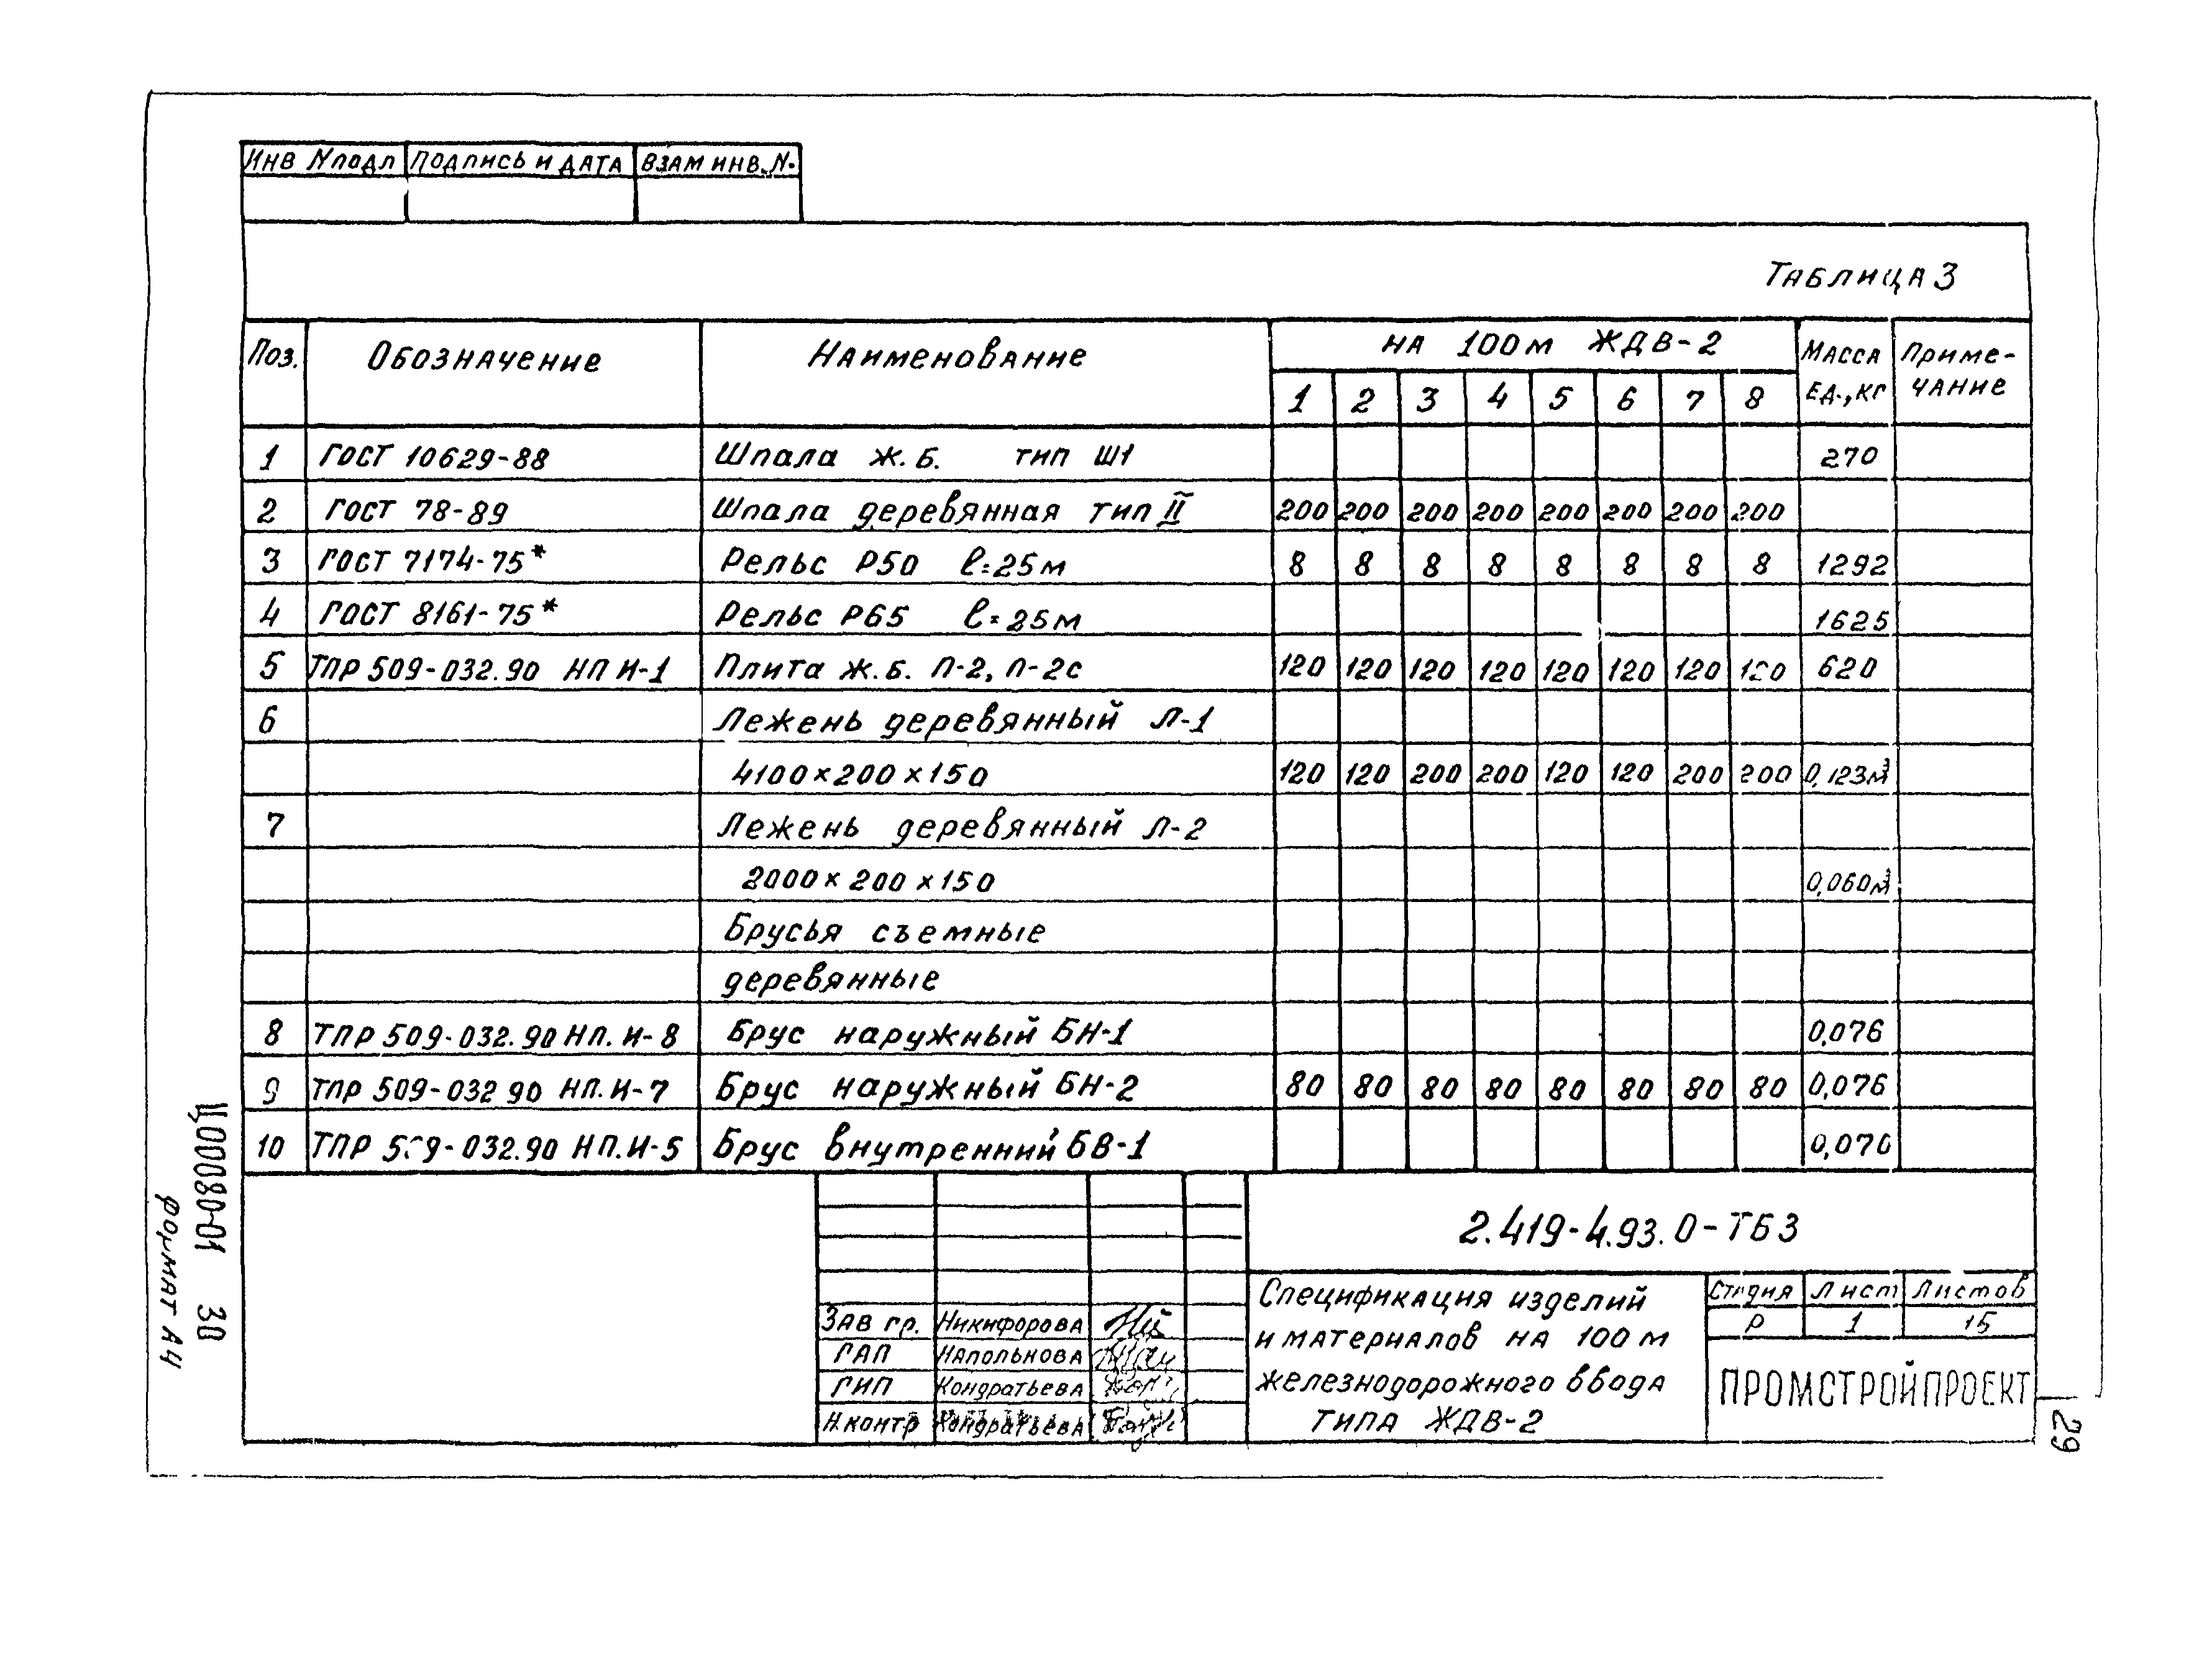 Инв N подл Подпись и дата Взам инв. N.
Таблица 3
Поз. Обозначение Наименование на 100м ЖДВ-2 Масса ед., кг Приме-чание
1 2 3 4 5 6 7 8
1 ГОСТ 10629-88 Шпала ж.б. тип Ш1 270
2 ГОСТ 78-89 Шпала деревянная тип II 200 200 200 200 200 200 200 200
3 ГОСТ 7174-75* Рельс Р50 ℓ=25м 8 8 8 8 8 8 8 8 1292
4 ГОСТ 8161-75* Рельс Р65 ℓ=25м 1625
5 ТПР 509-032.90 НП И-1 Плита ж.б. П-2, П-2с 120 120 120 120 120 120 120 120 620
6 Лежень деревянный Л-1
4100×200×150 120 120 200 200 120 120 200 200 0,123м³
7 Лежень деревянный Л-2
2000×200×150 0,060м³
Брусья съемные
деревянные
8 ТПР 509-032.90 НП. И-8 Брус наружный БН-1 0,076
9 ТПР 509-032 90 НП. И-7 Брус наружный БН-2 80 80 80 80 80 80 80 80 0,076
10 ТПР 509-032.90 НП. И-5 Брус внутренний БВ-1 0,070
2.419-4.93.0-ТБ3
Спецификация изделий
и материалов на 100 м
железнодорожного ввода
типа ЖДВ-2
Стадия Лист Листов
Р 1 15
ПРОМСТРОЙПРОЕКТ
Зав гр. Никифорова
ГАП Напольнова
ГИП Кондратьева
Н.контр Кондратьева
Ц00080-01 30
формат А4
29